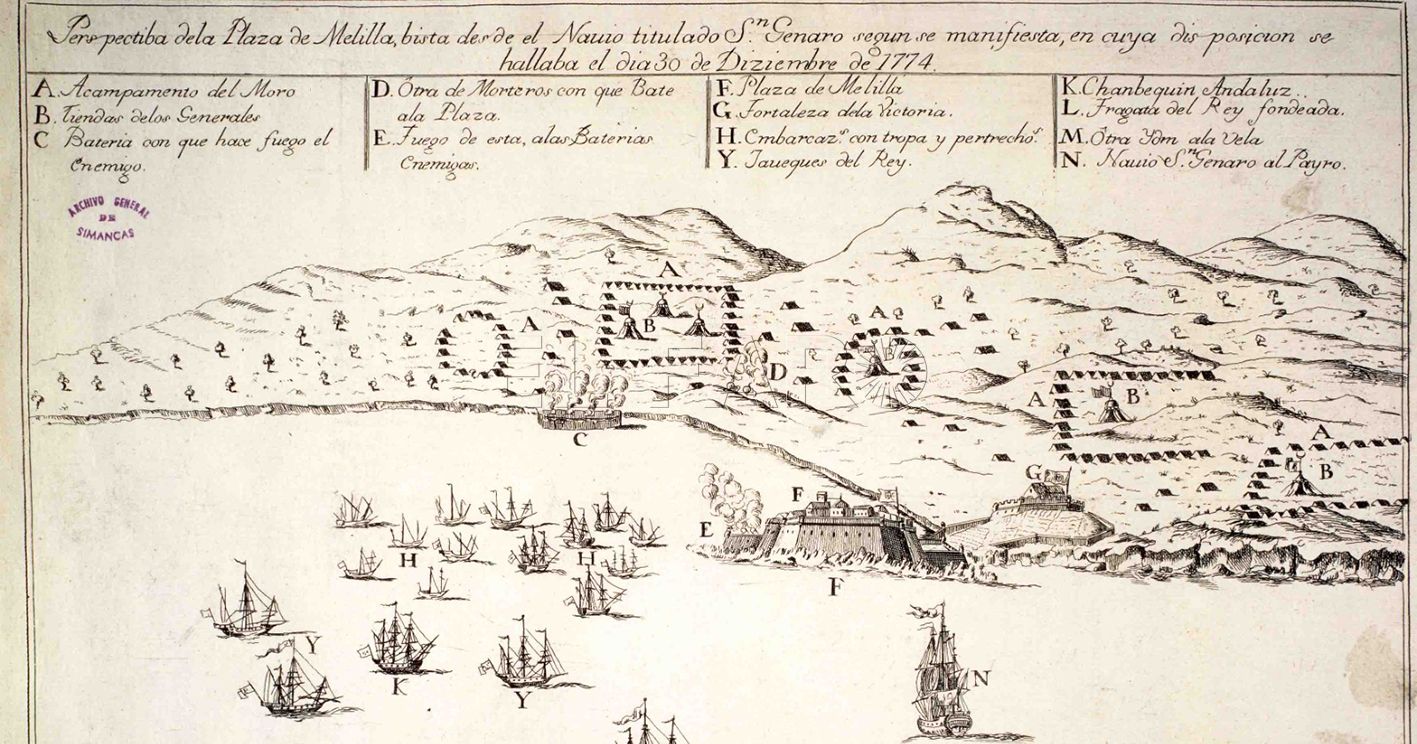 Perspectiba dela Plaza de Melilla, bista desde el Nauio titulado Sn. Genaro segun se manifiesta, en cuya disposicion se
hallaba el dia 30 de Diziembre de 1774.
A. Acampamento del Moro
B. Tiendas delos Generales
C Bateria con que hace fuego el
Enemigo.
D. Otra de Morteros con que Bate
ala Plaza.
E. Fuego de esta, alas Baterias
Enemigas.
F. Plaza de Melilla
G. Fortaleza dela Victoria.
H. Embarcazs. con tropa y pertrechos.
Y. Jaueques del Rey.
K. Chanbequin Andaluz.
L. Fragata del Rey fondeada.
M. Otra Ydm ala Vela
N. Nauio Sn. Genaro al Payro.
ARCHIVO GENERAL
DE
SIMANCAS
A
A
B
A
B
D
A
B
A
B
C
G
F
E
F
H
H
Y
K
Y
N
EL FARO